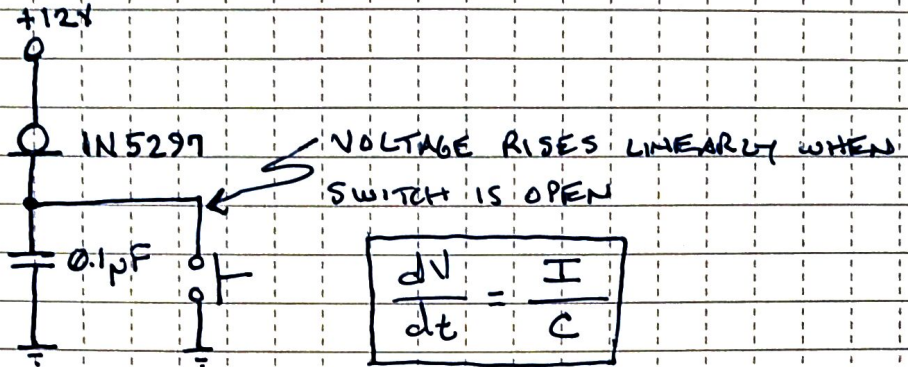 +12V
IN5297
VOLTAGE RISES LINEARLY WHEN
SWITCH IS OPEN
0.1µF
dV
dt
=
I
C